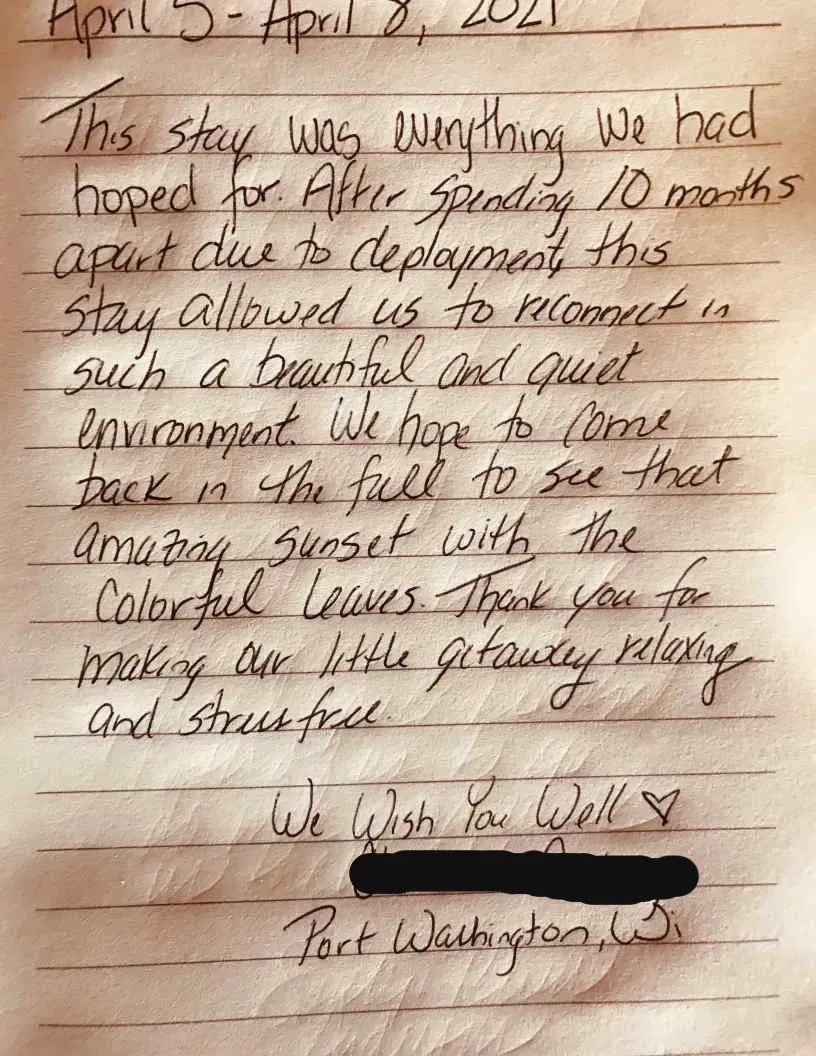 April 5 - April 8, 2021
This stay was everything we had
hoped for. After spending 10 months
apart due to deployment, this
stay allowed us to reconnect in
such a beautiful and quiet
environment. We hope to come
back in the fall to see that
amazing sunset with the
colorful leaves. Thank you for
making our little getaway relaxing
and stress free.
We Wish You Well ♡
Port Washington, Wi